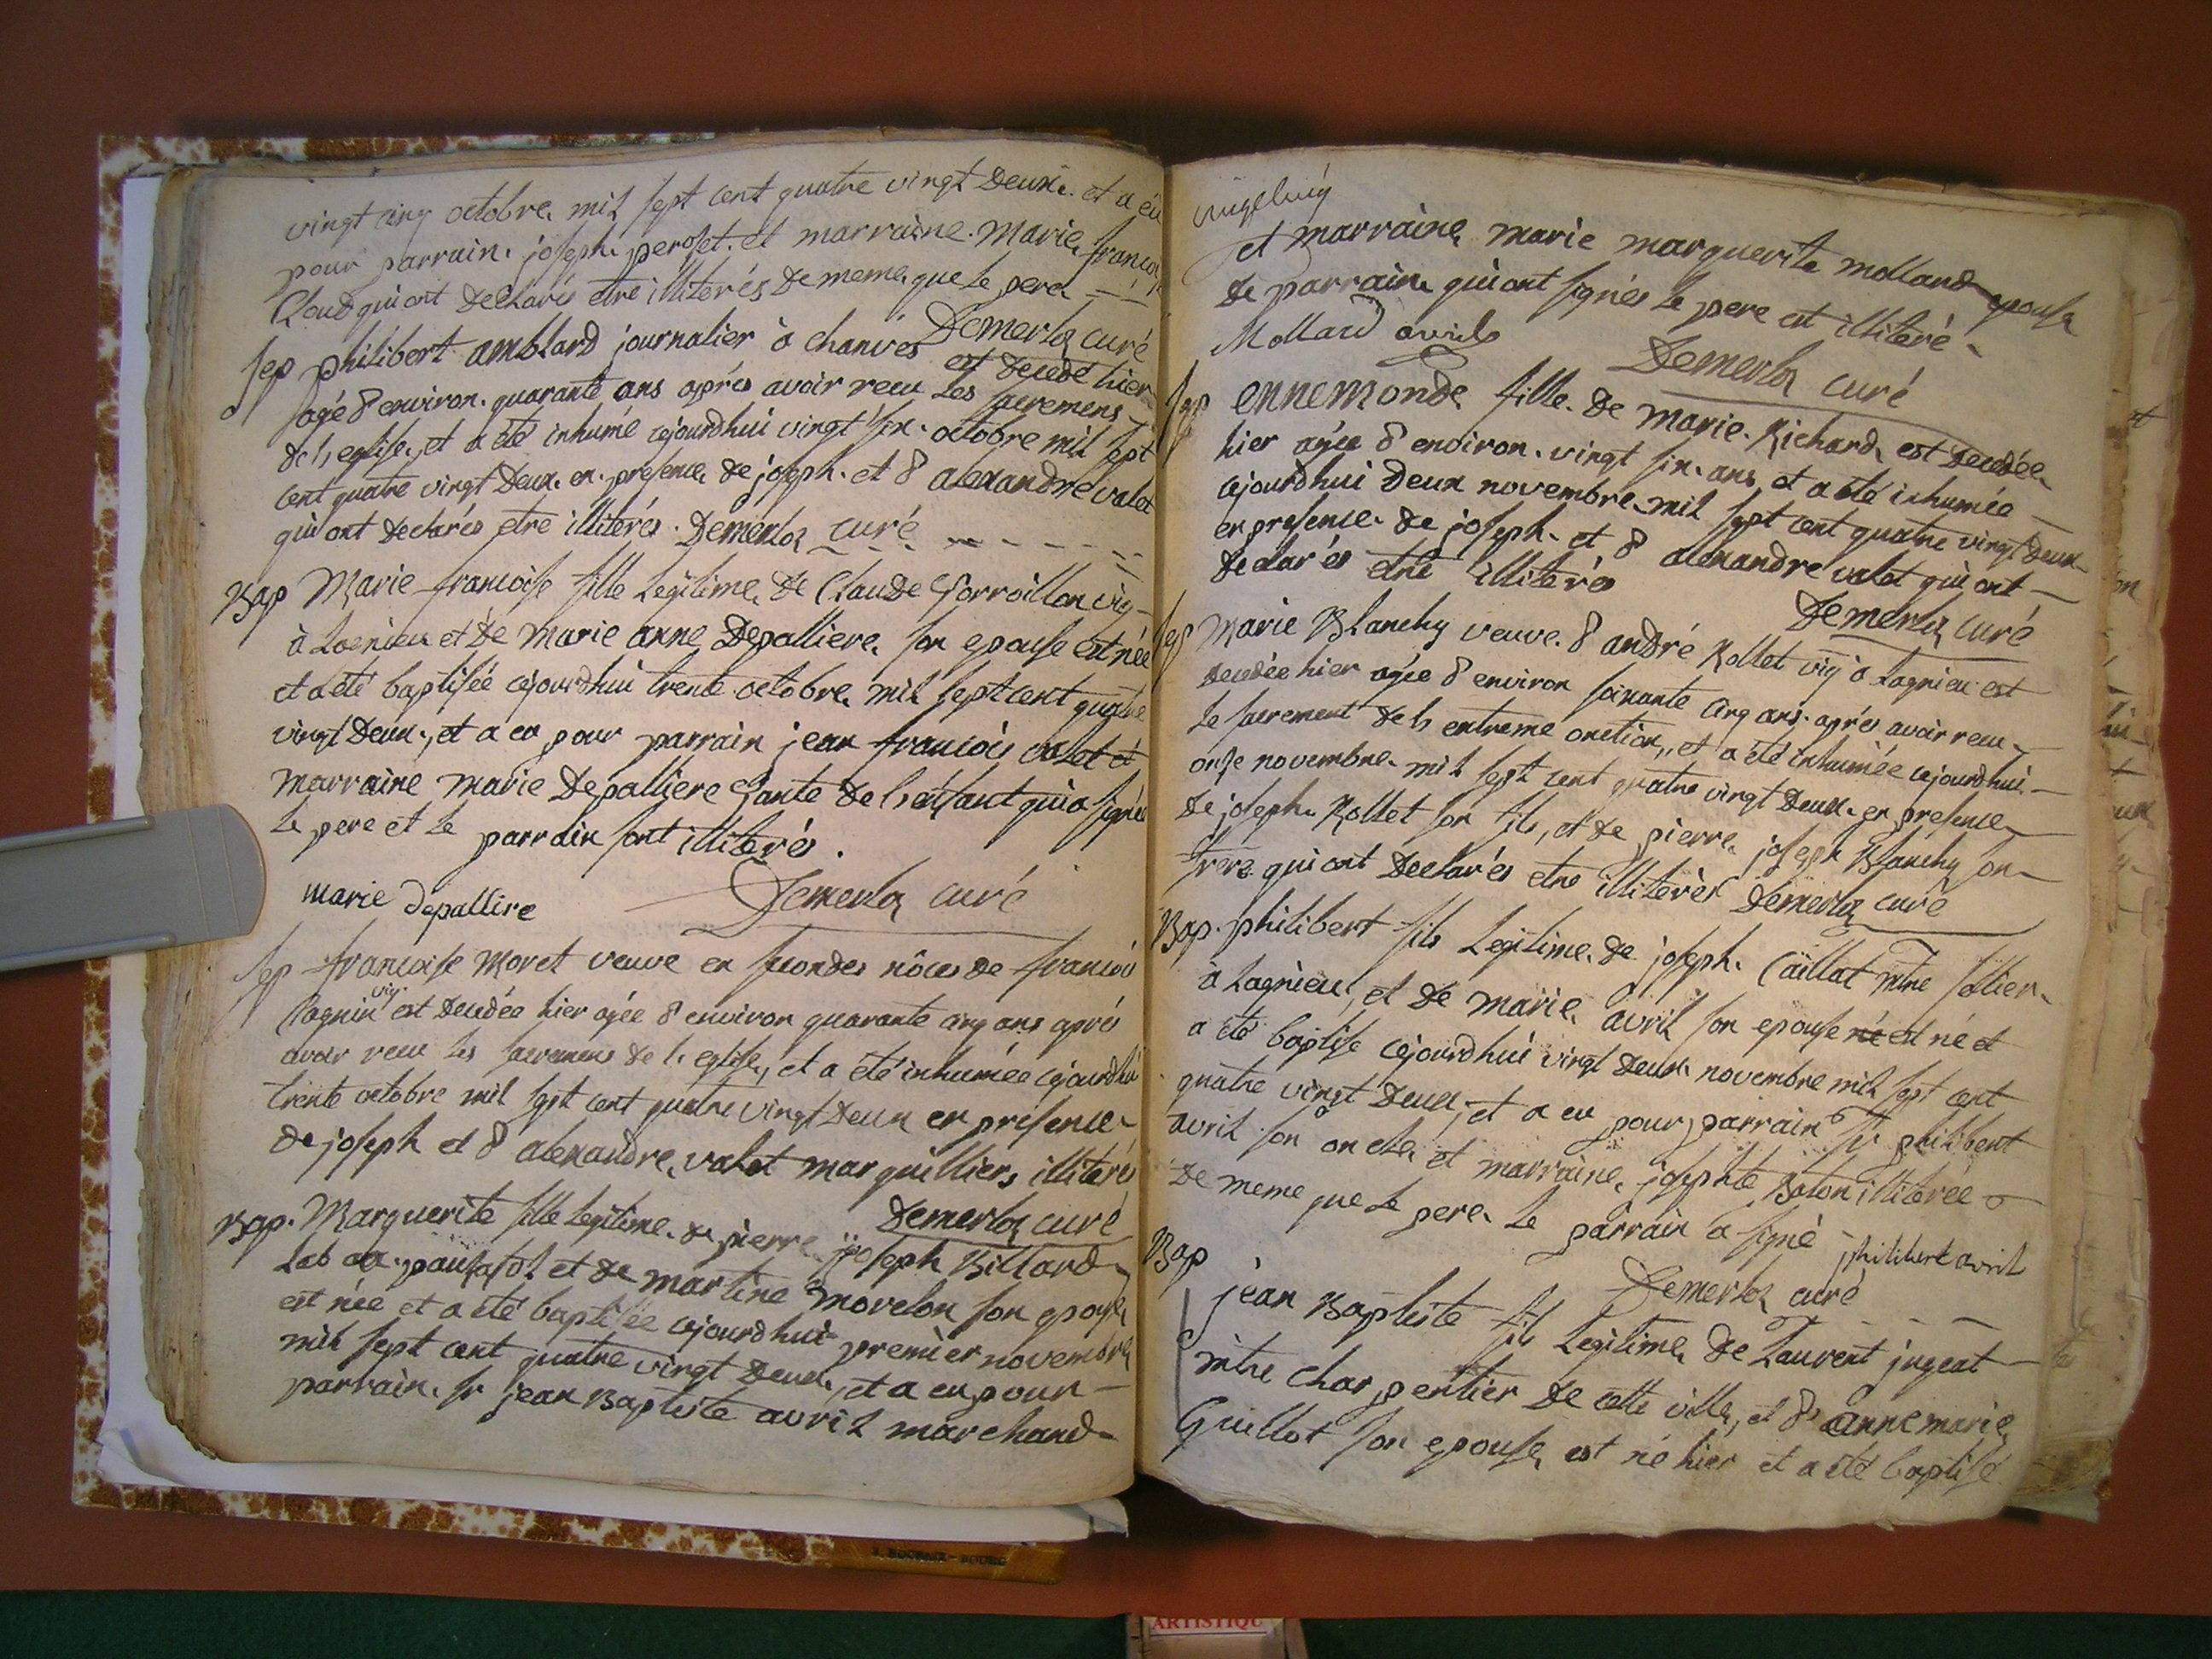 vingt cinq octobre mil sept cent quatre vingt Deux. et a eu
pour parrain. joseph. peroset. et marraine. Marie francoi
Cloud qui ont Declarés etre illiterés De meme que le pere
Demerloz curé
Sep philibert amblard journalier à chanves est decedé hier
agé d'environ. quarante ans aprés avoir recu les sacremens
de l'eglise, et a été inhumé cejourdhui vingt six. octobre mil sept
cent quatre vingt Deux. en. presence. de joseph. et d'alexandre valet
qui ont declarés etre illiterés. Demerloz curé
Bap Marie francoise fille legitime. de Claude Gorroillon vig
à Lagnieu et De Marie anne Depalliere. son epouse est née
et a été baptisée cejourdhui trente octobre. mil sept cent quatre
vingt Deux., et a eu pour parrain jean francois valet et
marraine marie Depalliere tante de l'enfant qui a signée
le pere et le parrain sont illiterés.
marie depallire Demerloz curé
Sep francoise Moret veuve en secondes nôces de francois
vig
Cagnin est Decedée hier agée d'environ quarante cinq ans aprés
avoir recu les sacremens de l'eglise, et a été inhumée cejourdhui
trente octobre mil sept cent quatre vingt Deux en présence
De joseph et d'alexandre, valet marguilliers illiterés
Demerloz curé
Bap. Marguerite fille legitime. de pierre joseph Billard
lab au. pansafol et de martine movelon son epouse
est née et a été baptisée cejourdhui premier novembre
mil sept cent quatre vingt Deux., et a eu pour
parrain. sr jean Baptiste avril marchand
et marraine marie marguerite molland epouse
de parrain. qui ont signés le pere est illiteré
Mollard avril Demerloz curé
Sep ennemonde fille. de marie. Richard, est Decedée
hier agée d'environ. vingt six. ans, et a été inhumée
cejourdhui Deux novembre mil sept cent quatre vingt Deux
en presence. de joseph. et d'alexandre valet qui ont
declarés etre illiterés Demerloz curé
Sep Marie Blanchy veuve. d'andré Rollet vig à Lagnieu est
decedée hier agée d'environ soixante cinq ans. aprés avoir recu
le sacrement de l'extreme onction, et a été inhumée cejourdhui.
onze novembre. mil sept cent quatre vingt Deux. en presence
de joseph. Rollet son fils, et de pierre. joseph Blanchy son
frere qui ont Declarés etre illiterés Demerloz curé
Bap. philibert fils legitime. de joseph. Caillat mtre sellier
à Lagnieu, et de marie. avril son epouse né est né et
a été baptisé cejourdhui vingt deux novembre mil sept cent
quatre vingt Deux, et a eu pour parrain sr philibert
avril son oncle. et marraine. josephte Boton illiterée
De meme que le pere. le parrain a signé philibert avril
Demerloz curé
Bap jean Baptiste fils legitime de Laurent jugeat
mtre charpentier De cette ville, et d'anne marie
Guillot son epouse, est né hier et a été baptisé
ARTISTIQU